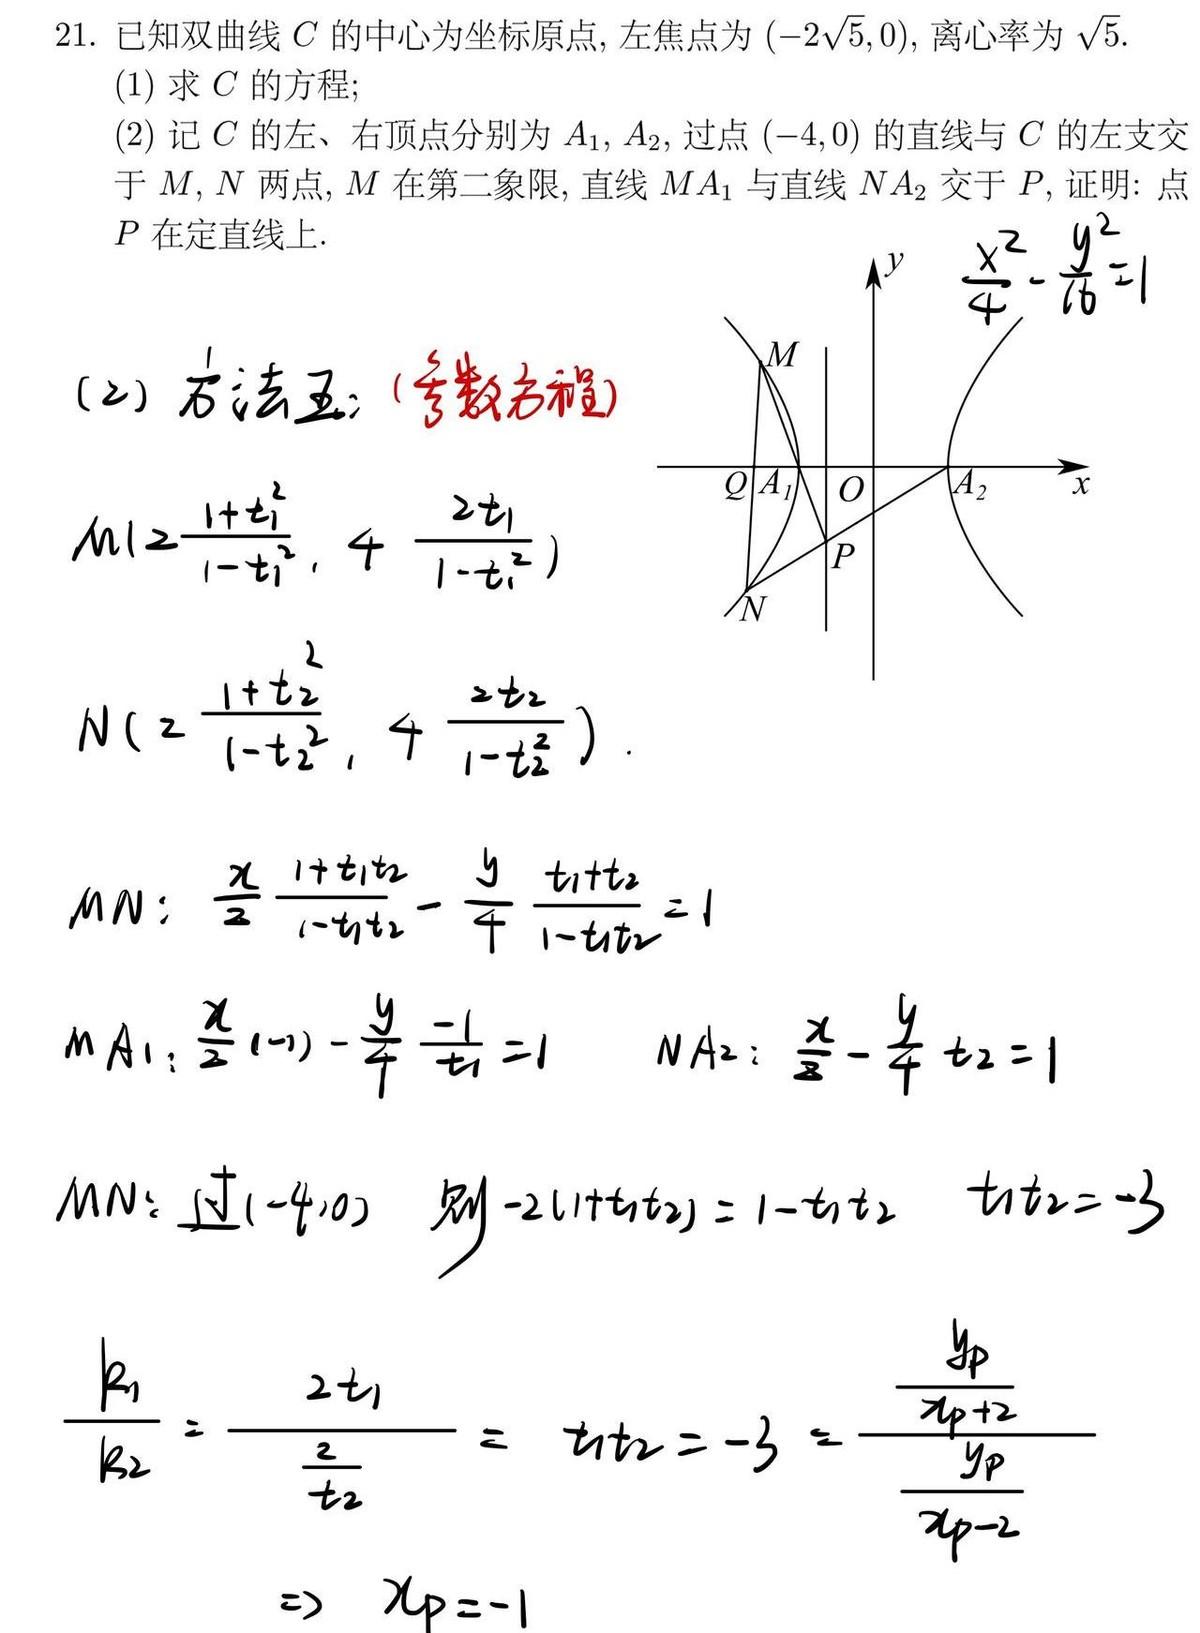 21. 已知双曲线 C 的中心为坐标原点, 左焦点为 (−2√5, 0), 离心率为 √5.
(1) 求 C 的方程;
(2) 记 C 的左、右顶点分别为 A₁, A₂, 过点 (−4, 0) 的直线与 C 的左支交
于 M, N 两点, M 在第二象限, 直线 MA₁ 与直线 NA₂ 交于 P, 证明: 点
P 在定直线上.
x²/4 - y²/16 = 1
y
M
Q A₁ O A₂ x
P
N
(2) 方法五: (参数方程)
M(2 (1+t₁²)/(1-t₁²), 4 2t₁/(1-t₁²))
N(2 (1+t₂²)/(1-t₂²), 4 2t₂/(1-t₂²)).
MN: x/2 (1+t₁t₂)/(1-t₁t₂) - y/4 (t₁+t₂)/(1-t₁t₂) = 1
MA₁: x/2 (-1) - y/4 -1/t₁ = 1 NA₂: x/2 - y/4 t₂ = 1
MN: 过(-4,0) 则 -2(1+t₁t₂) = 1-t₁t₂ t₁t₂ = -3
k₁/k₂ = 2t₁/(2/t₂) = t₁t₂ = -3 = (yₚ/(xₚ+2))/(yₚ/(xₚ-2))
=> xₚ = -1